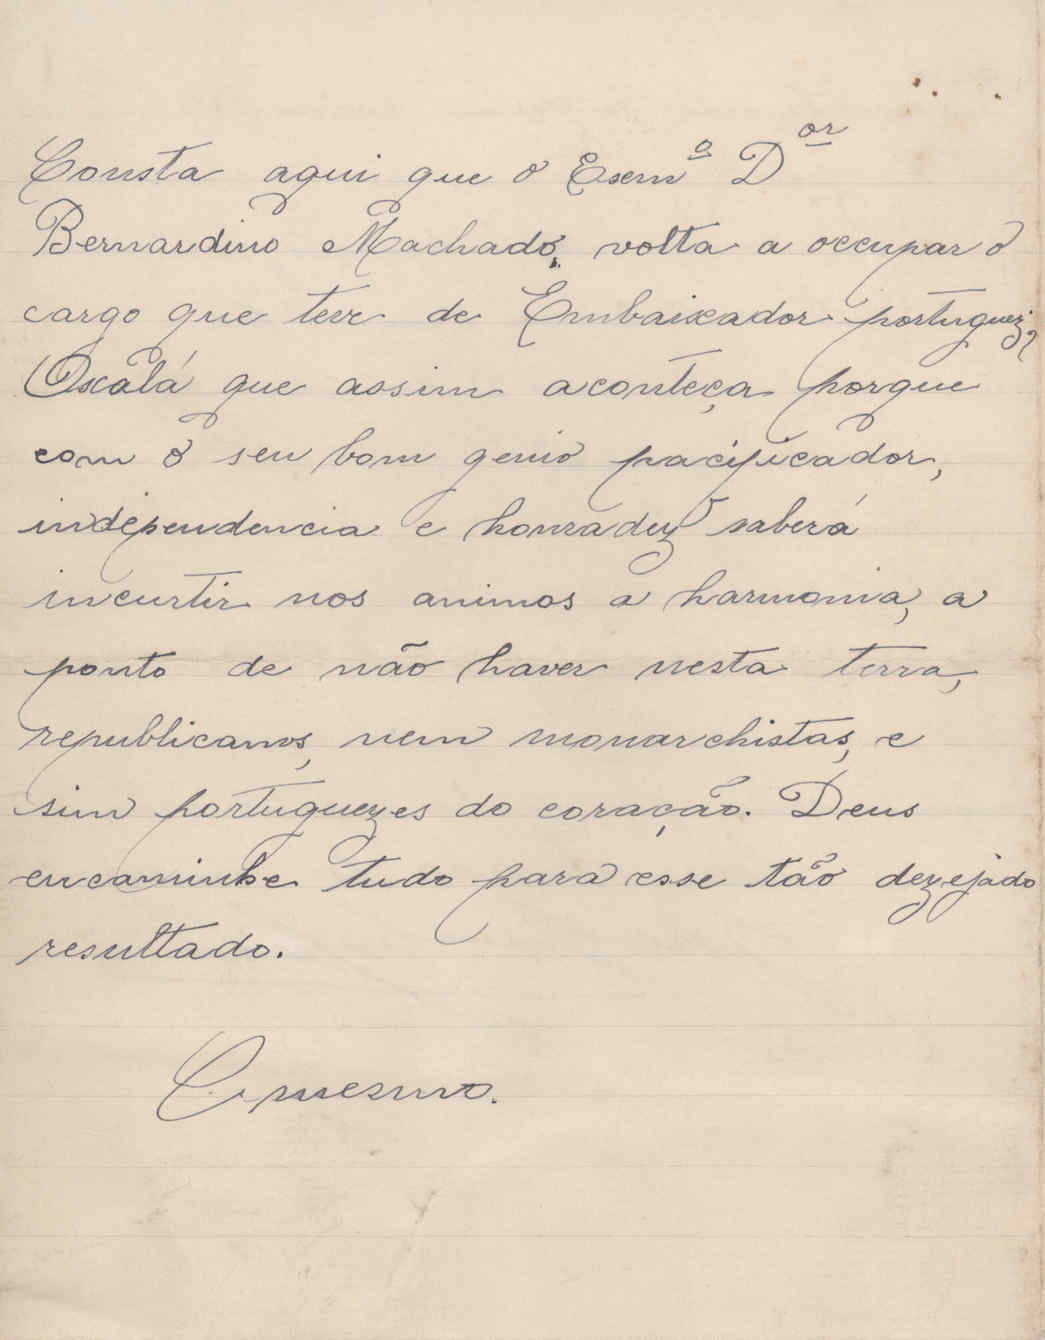 Consta aqui que o Exemº Dor
Bernardino Machado, volta a occupar o
cargo que teve de Embaixador portuguez?
Oxalá que assim aconteça porque
com o seu bom genio pacificador,
independencia e honradez saberá
incurtir nos animos a harmonia, a
ponto de não haver nesta terra,
republicanos, nem monarchistas, e
sim portuguezes do coração. Deus
encaminhe tudo para esse tão dezejado
resultado.
O mesmo.